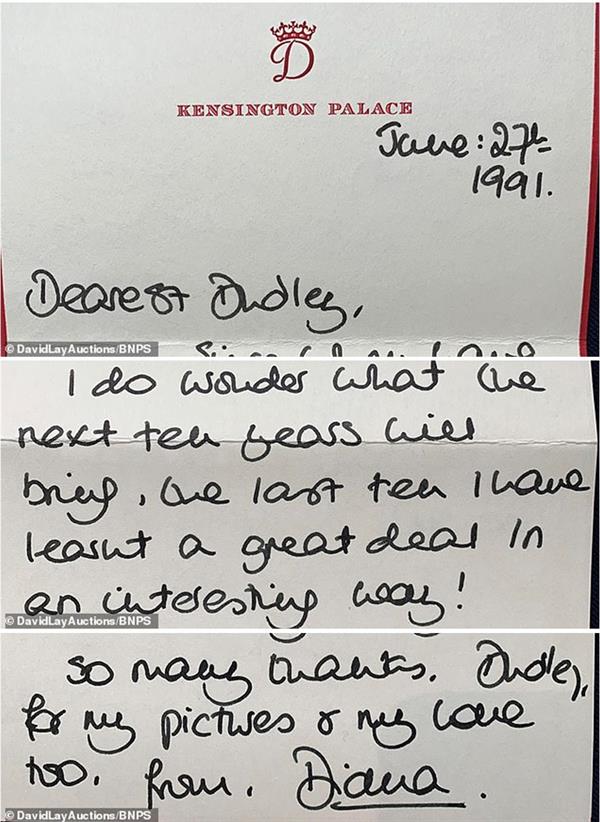 D
KENSINGTON PALACE
June: 27th
1991.
Dearest Dudley,
© DavidLayAuctions/BNPS
I do wonder what the
next ten years will
bring, the last ten I have
learnt a great deal in
an interesting way!
© DavidLayAuctions/BNPS
So many thanks. Dudley,
for my pictures & my love
too. from. Diana.
© DavidLayAuctions/BNPS